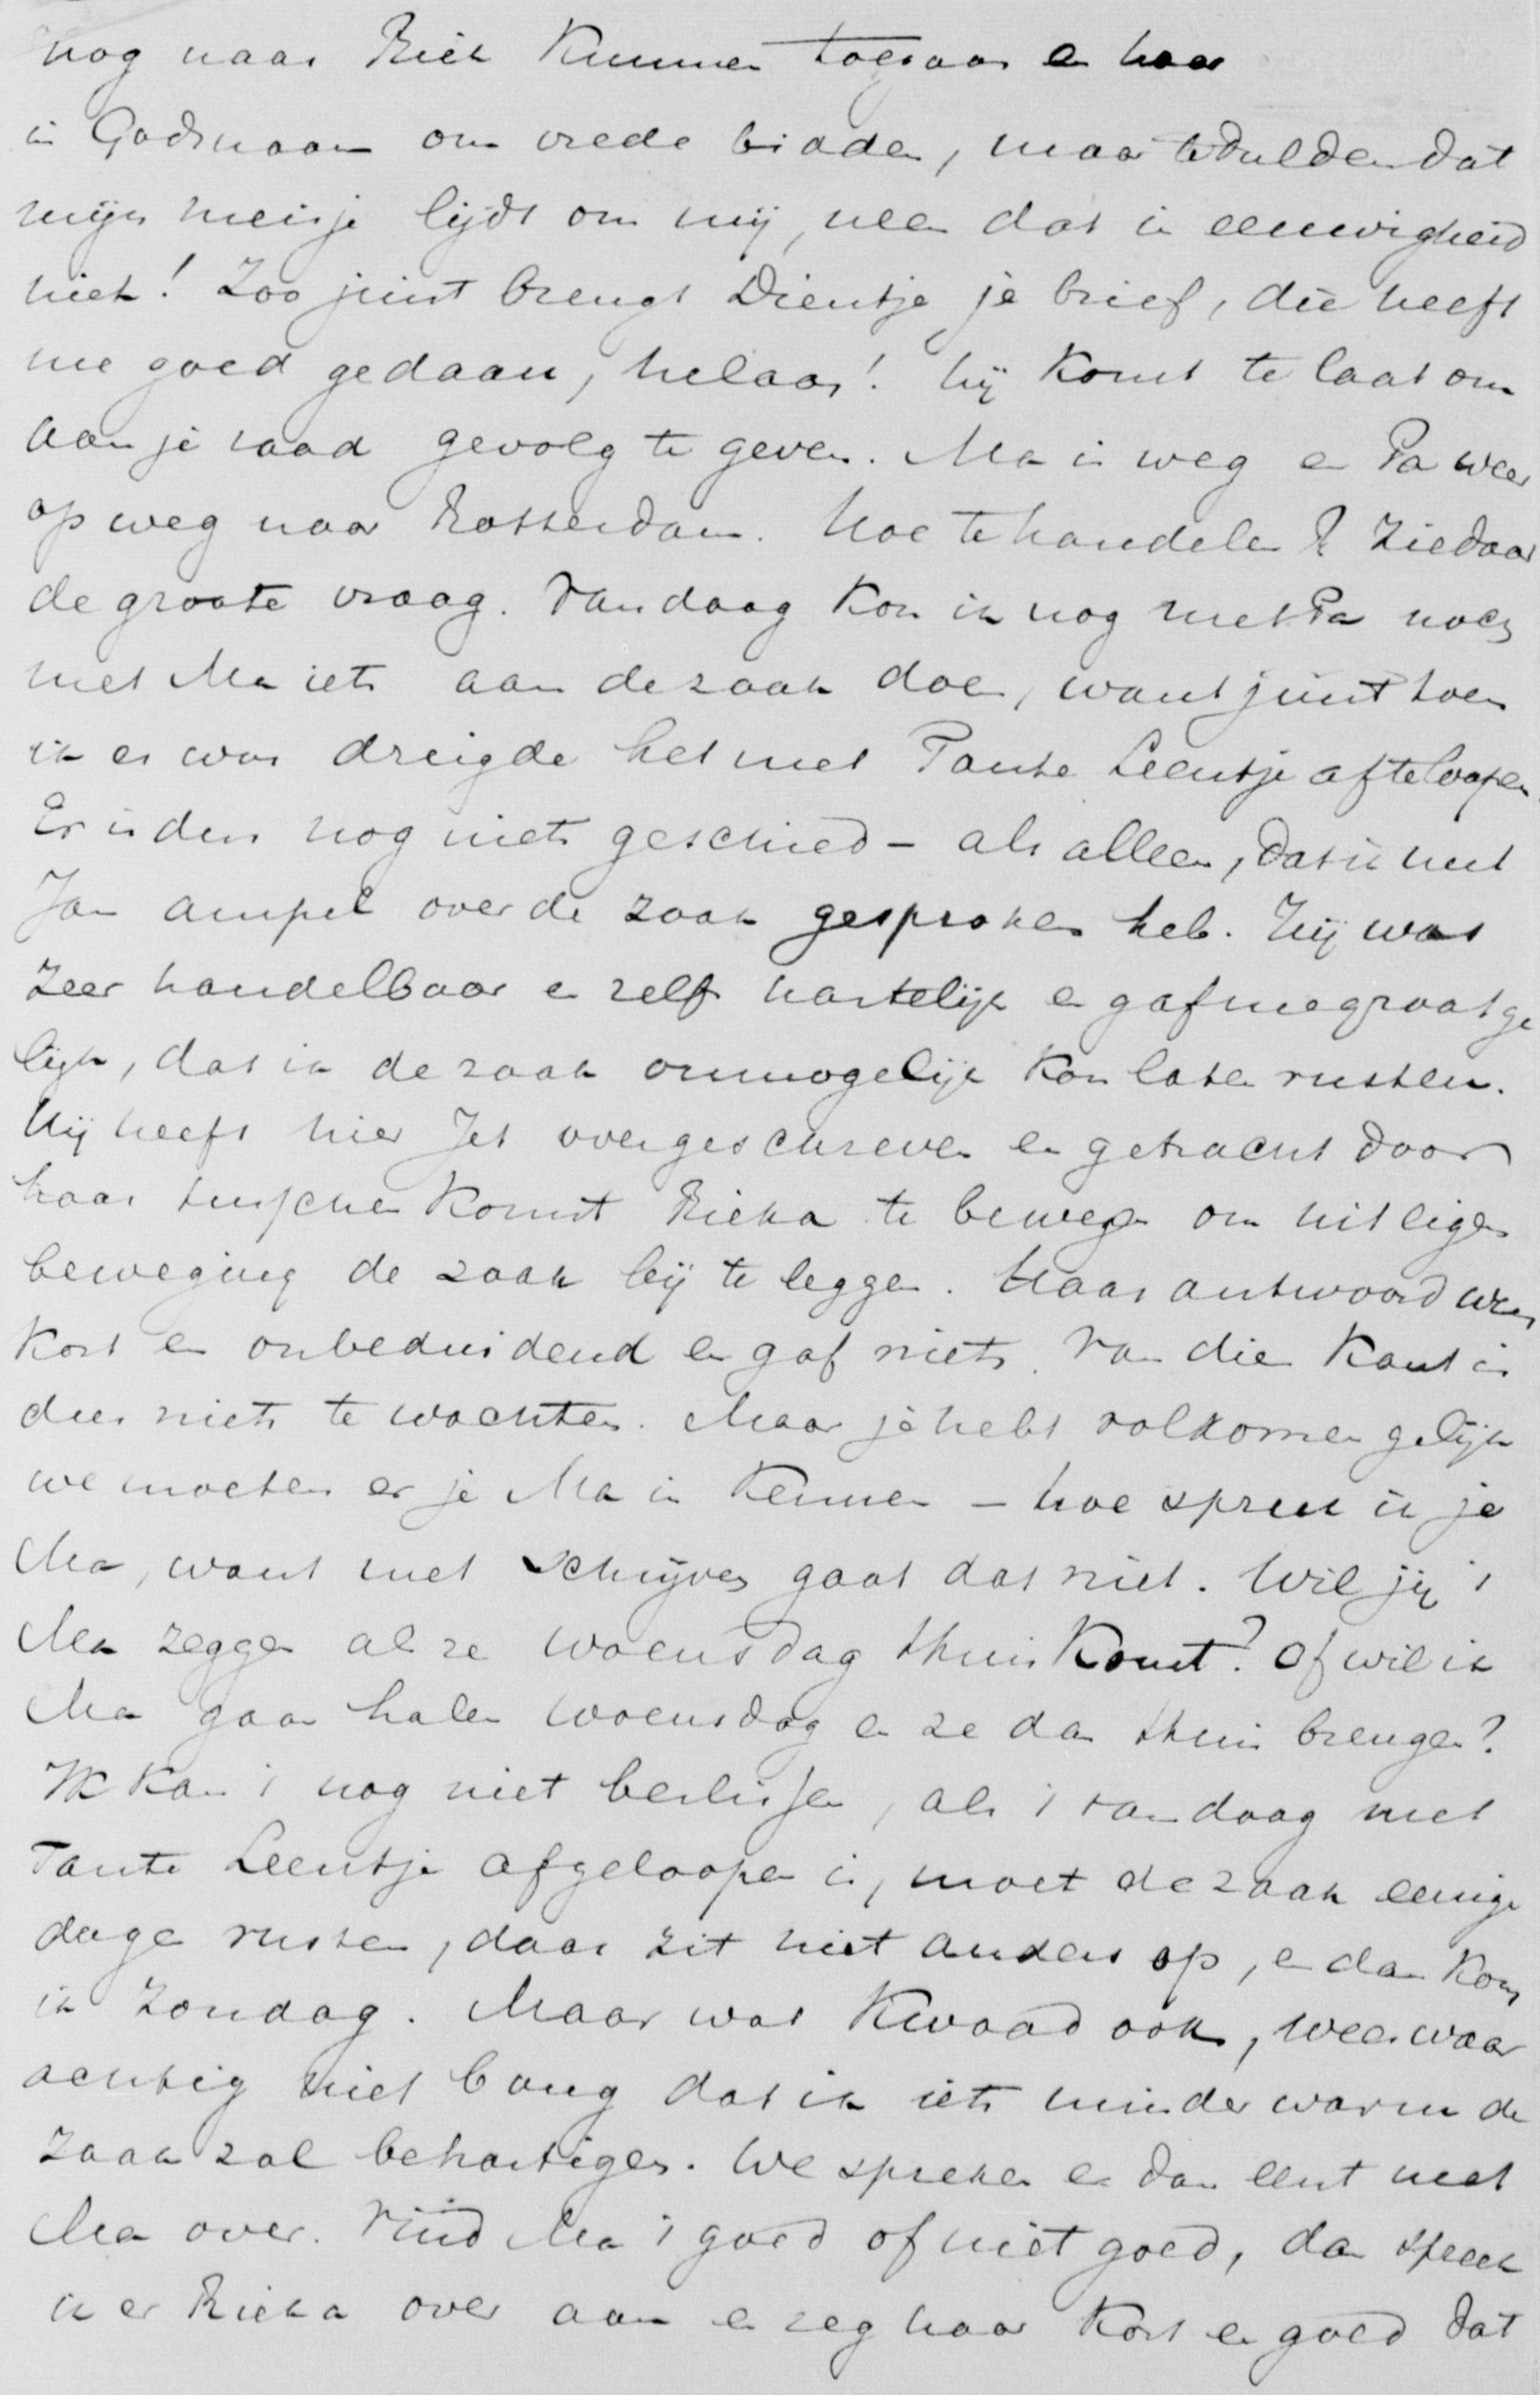 nog naar Riek kunnen toegaan en haar
in Godsnaam om vrede bidden, maar te dulden dat
mijn meisje lijdt om mij, neen dat in eeuwigheid
niet! Zoo juist brengt Dientje je brief, die heeft
me goed gedaan, helaas! hij komt te laat om
aan je raad gevolg te geven. Ma is weg en Pa weer
op weg naar Rotterdam. Hoe te handelen? Ziedaar
de groote vraag. Vandaag kon ik nog met Pa noch
met Ma iets aan de zaak doen, want juist toen
ik er was dreigde het met Tante Leentje af te loopen
Er is dus nog niets geschied - als alleen, dat ik met
Jan ampel over de zaak gesproken heb. Hij was
zeer handelbaar en zelfs hartelijk en gaf me groot ge
lijk, dat ik de zaak onmogelijk kon laten rusten.
Hij heeft hier Jet over geschreven en getracht door
haar tusschenkomst Rieka te bewegen om uit eigen
beweging de zaak bij te leggen. Haar antwoord was
kort en onbeduidend en gaf niets. Van die kant is
dus niets te wachten. Maar je hebt volkomen gelijk
we moeten er je Ma in kennen - hoe spreek ik je
Ma, want met schrijven gaat dat niet. Wil jij 't
Ma zeggen als ze woensdag thuis komt? Of wil ik
Ma gaan halen woensdag en ze dan thuis brengen?
Ik kan 't nog niet beslissen, als 't vandaag met
Tante Leentje afgeloopen is, moet de zaak eenige
dagen rusten, daar zit niet anders op, en dan kom
ik Zondag. Maar wat kwaad ook, wees waar
achtig niet bang dat ik iets minder warm de
zaak zal behartigen. We spreken er dan eerst met
Ma over. Vind Ma 't goed of niet goed, dan spreek
ik er Rieka over aan en zeg haar kort en goed dat